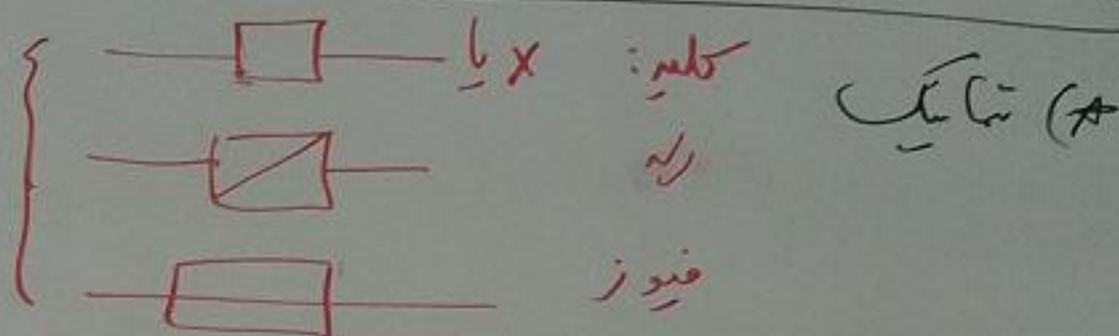 *) شماتیک
کلید: x یا
رله
فیوز